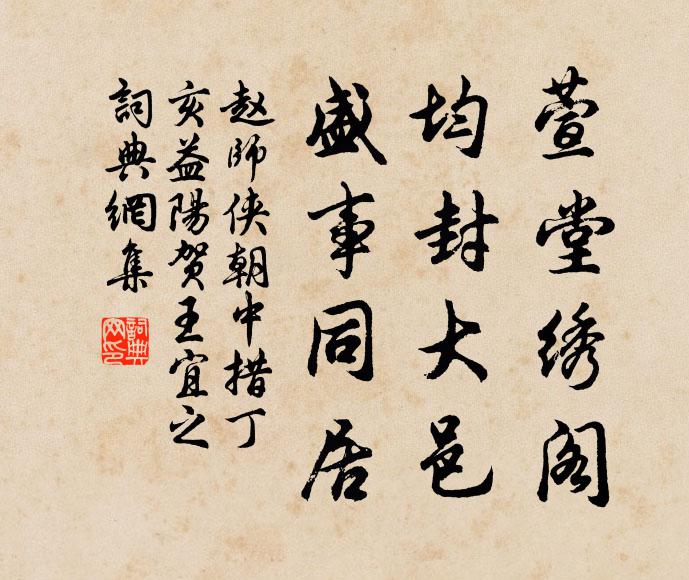 萱堂绣阁
均封大邑
盛事同居
赵师侠朝中措丁
亥益陽贺王宜之
詞典網集
詞典網印